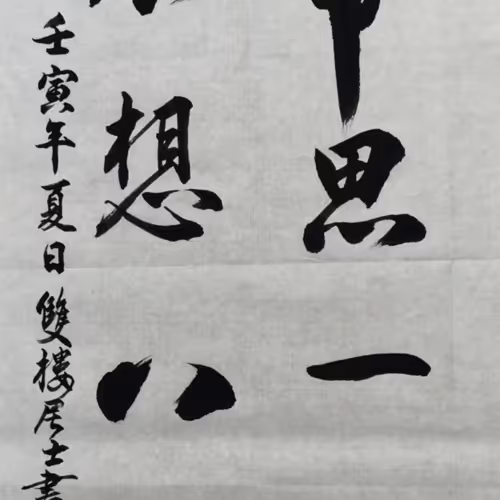 思一
想八
壬寅年夏日雙樓居士書